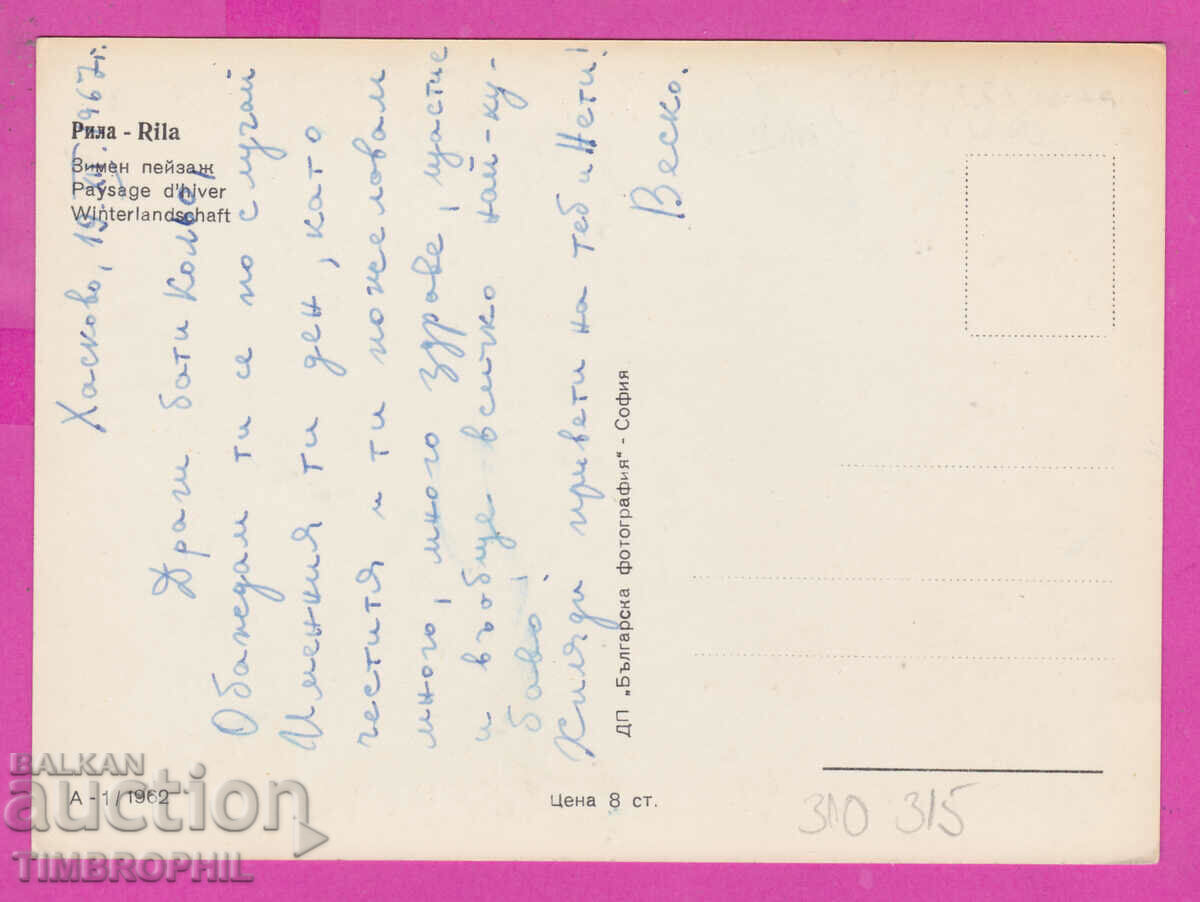 Рила - Rila
Зимен пейзаж
Paysage d'hiver
Winterlandschaft
Хасково, 19.XII.1967г.
Драги бати Кольо,
Обаждам ти се по случай
Именния ти ден, като
честитя и ти пожелавам
много, много здраве, щастие
и въобще всичко най-ху-
баво!
Хиляди привети на теб и Нети!
Веско.
ДП „Българска фотография“ - София
А - 1/1962
Цена 8 ст.
310 315
BALKAN
auction
TIMBROPHIL